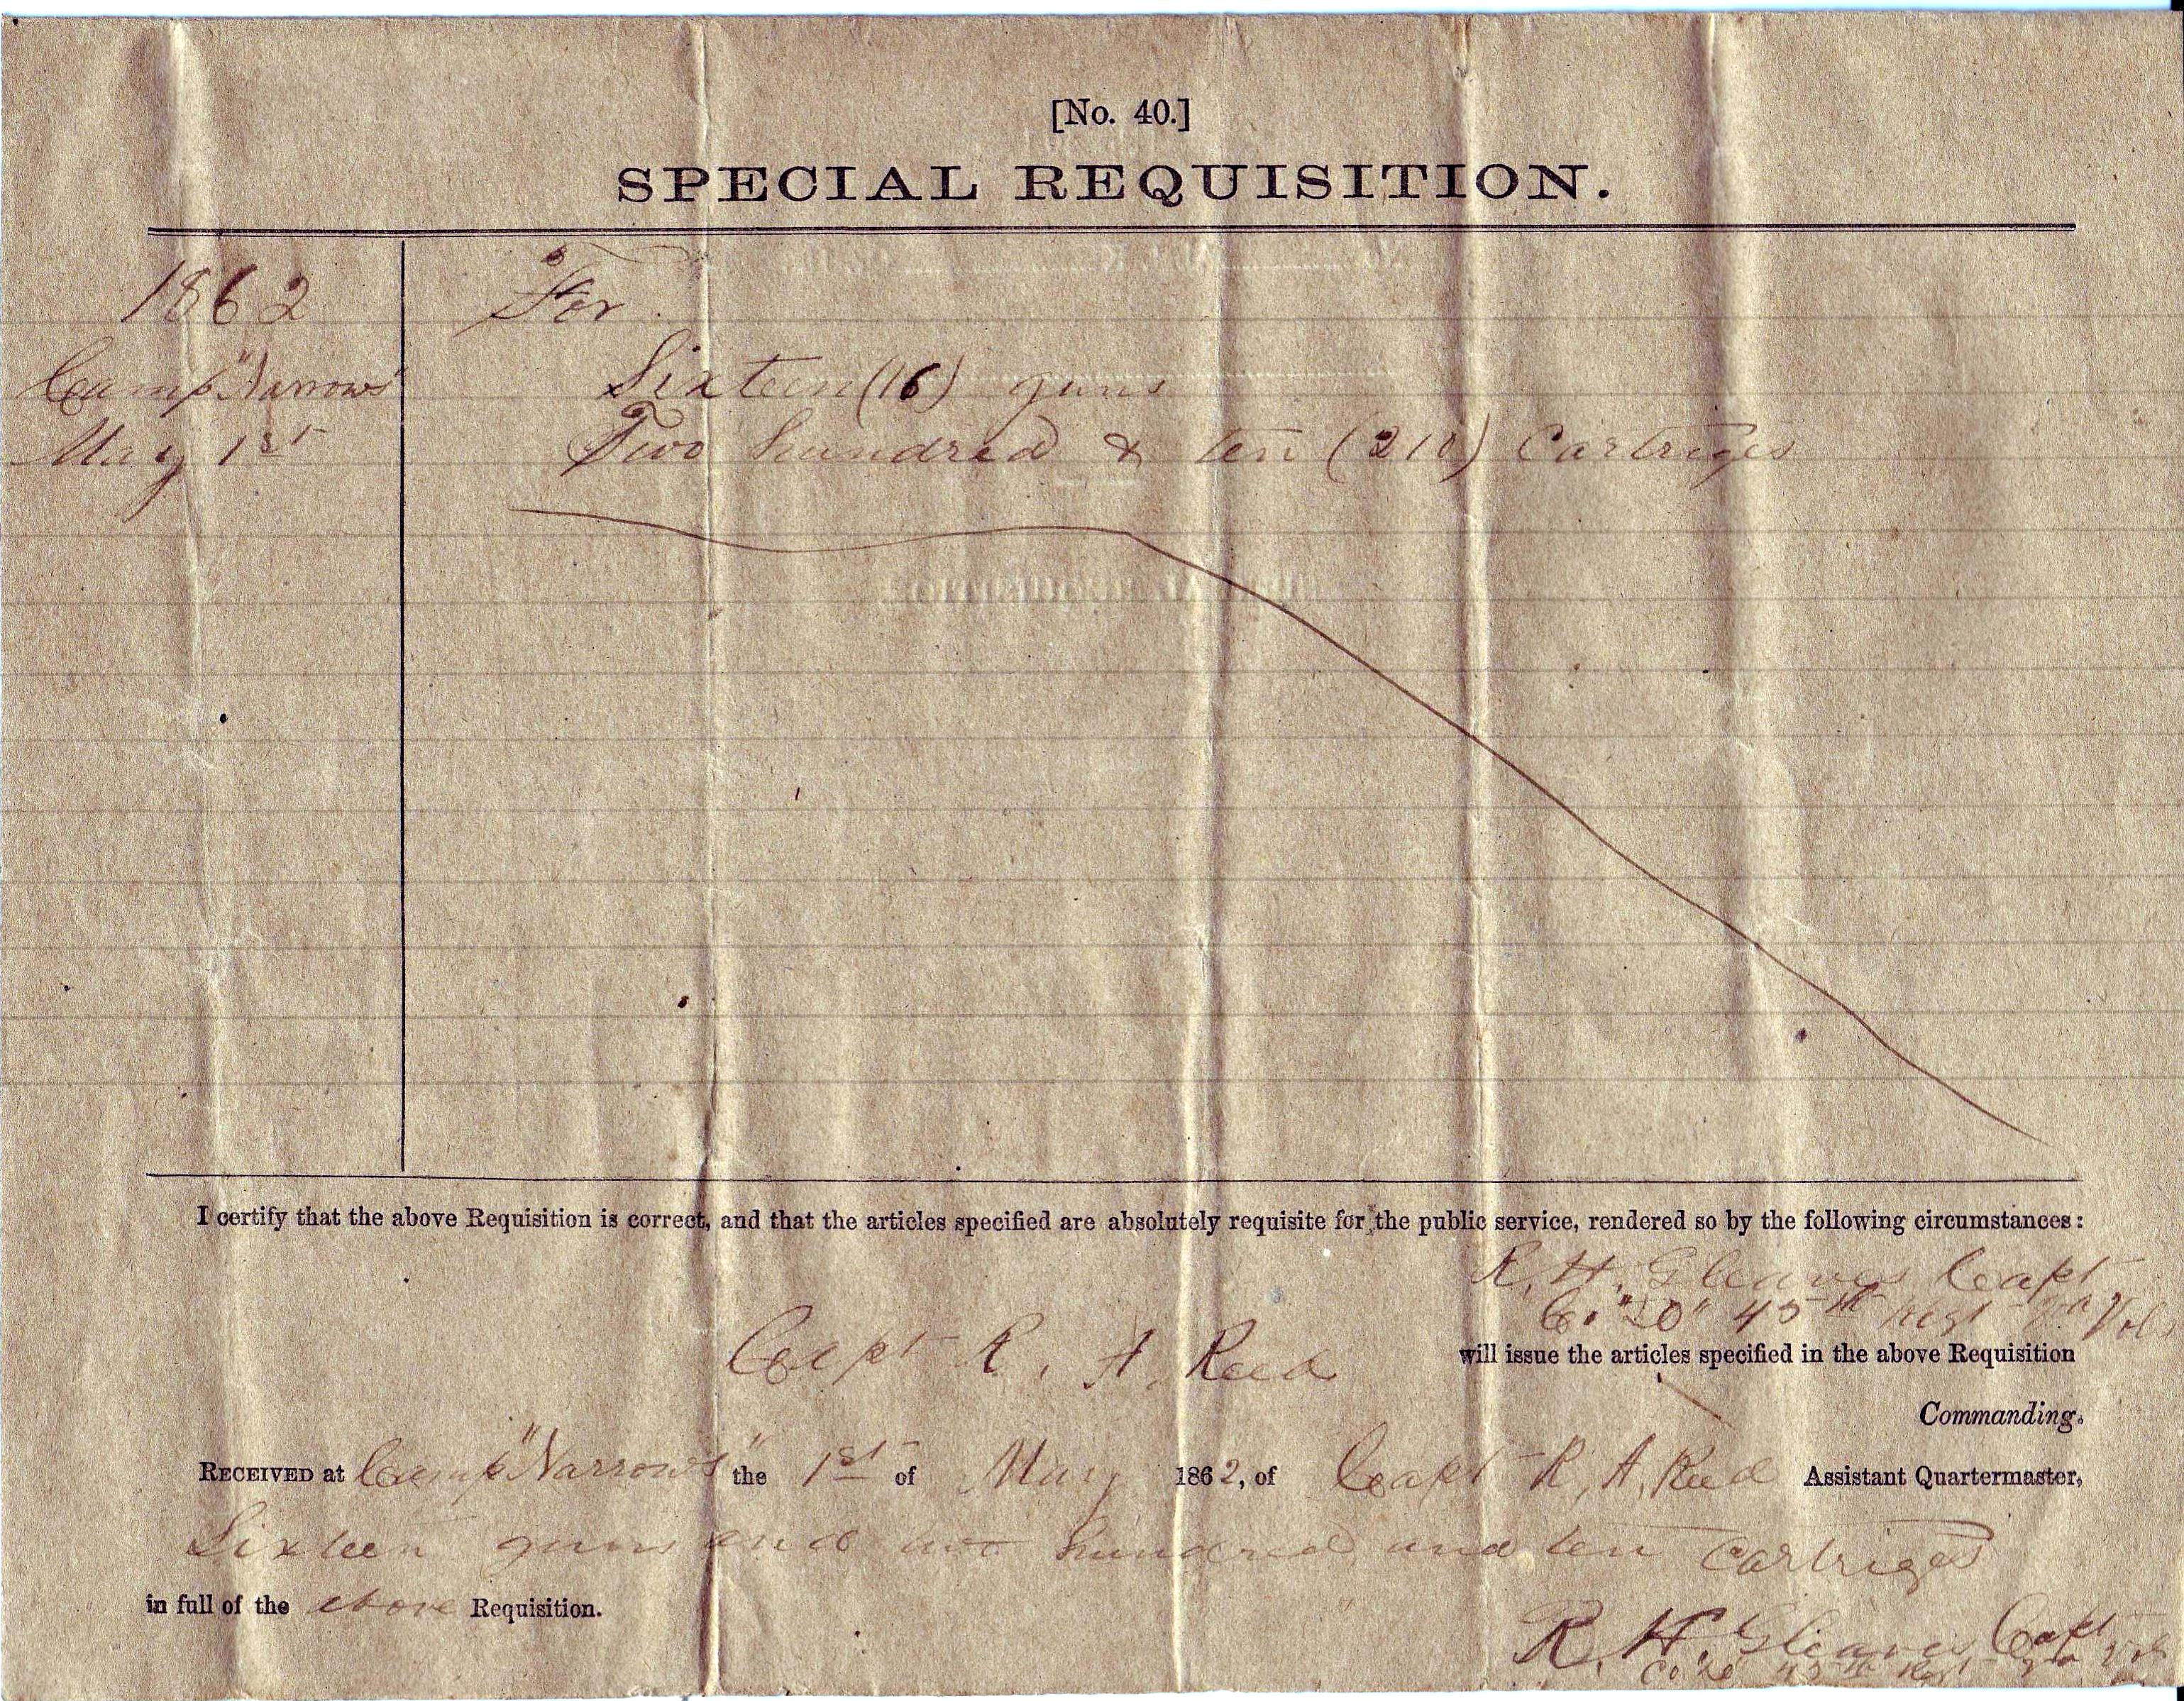 [No. 40.]
SPECIAL REQUISITION.
1862
For
Camp "Narrows"
Sixteen (16) guns
May 1st
Two hundred & ten (210) Cartriges
I certify that the above Requisition is correct, and that the articles specified are absolutely requisite for the public service, rendered so by the following circumstances:
R. H. Gleaves Capt
Co. 45th Regt Va Vols
Capt R. A. Reed
will issue the articles specified in the above Requisition
Commanding.
RECEIVED at Camp "Narrows" the 1st of May 1862, of Capt R. A. Reed Assistant Quartermaster,
Sixteen guns and two hundred and ten Cartriges
in full of the above Requisition.
R. H. Gleaves Capt
Co 45th Regt Va Vols